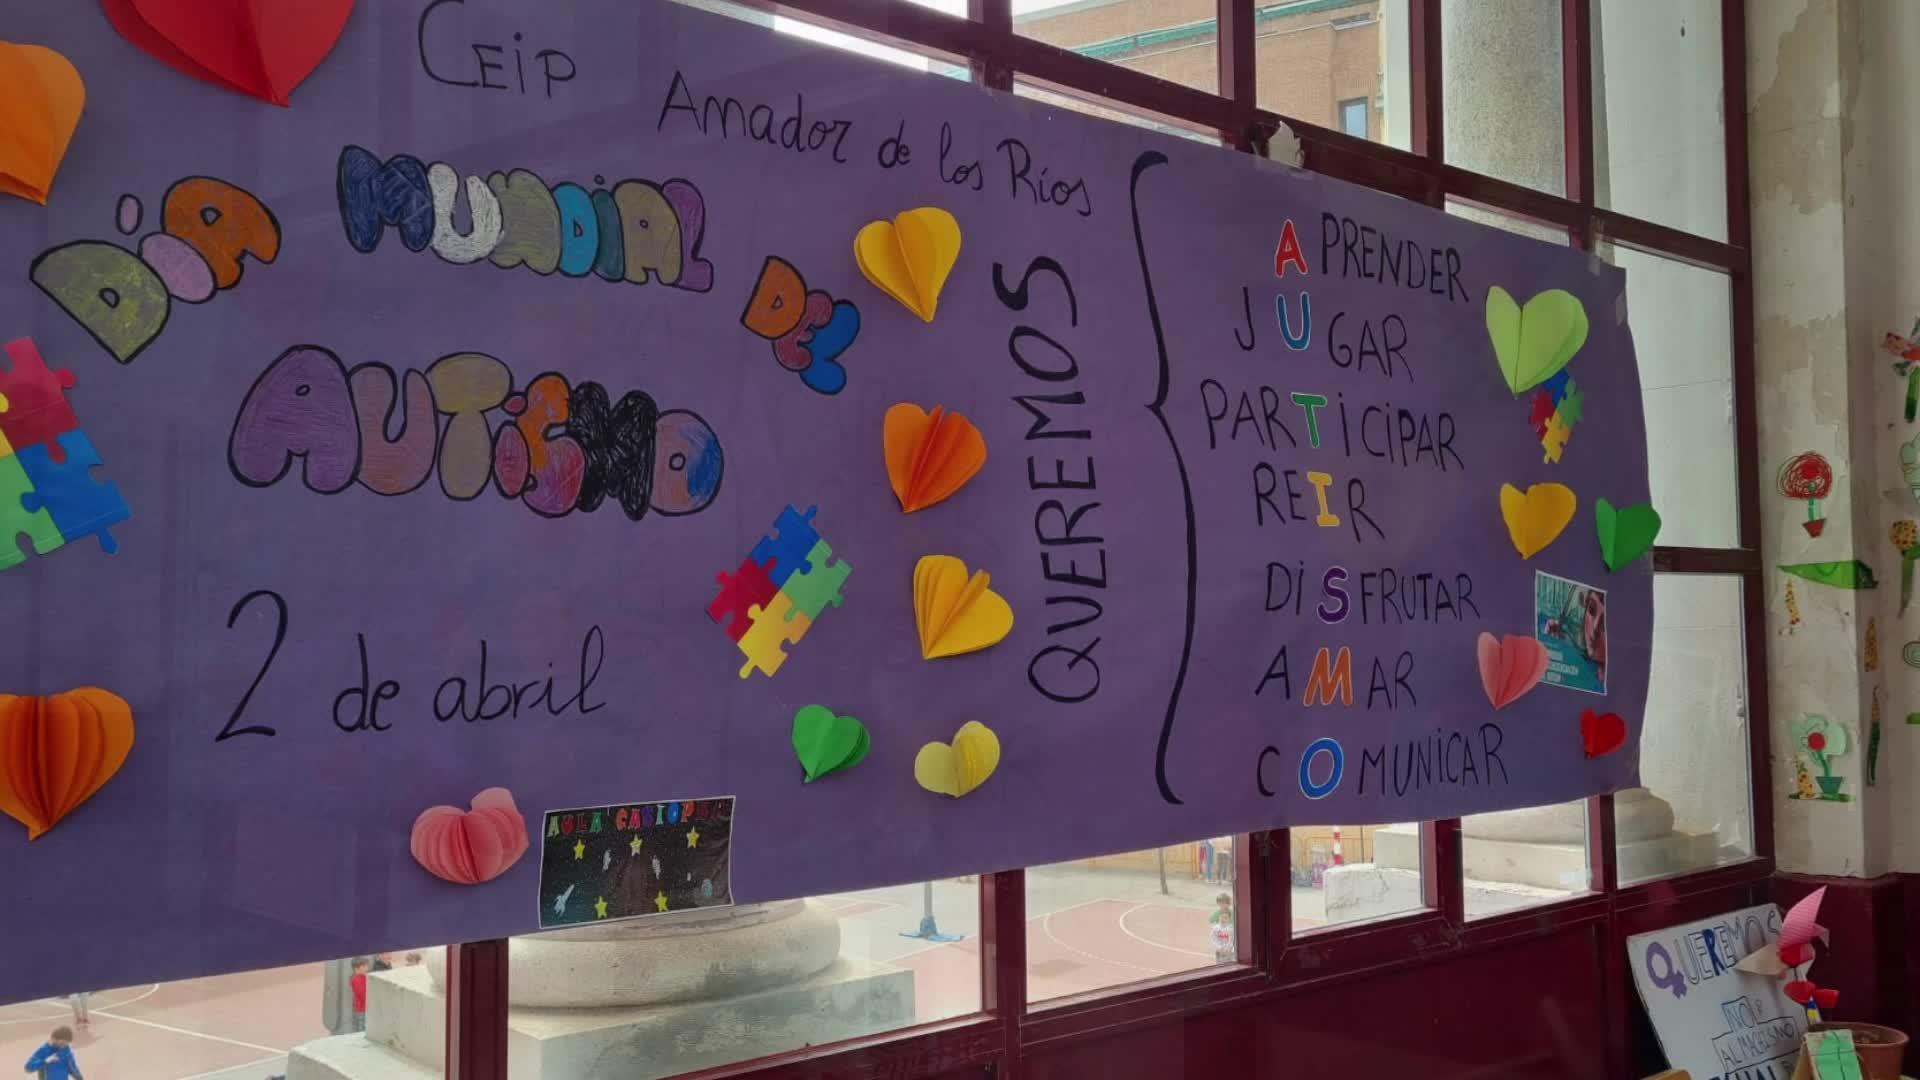 CEIP Amador de los Ríos
DÍA MUNDIAL DEL
AUTISMO
2 de abril
AULA CASIOPEA
QUEREMOS
APRENDER
JUGAR
PARTICIPAR
REIR
DISFRUTAR
AMAR
COMUNICAR
QUEREMOS
NO
AL MACHISMO